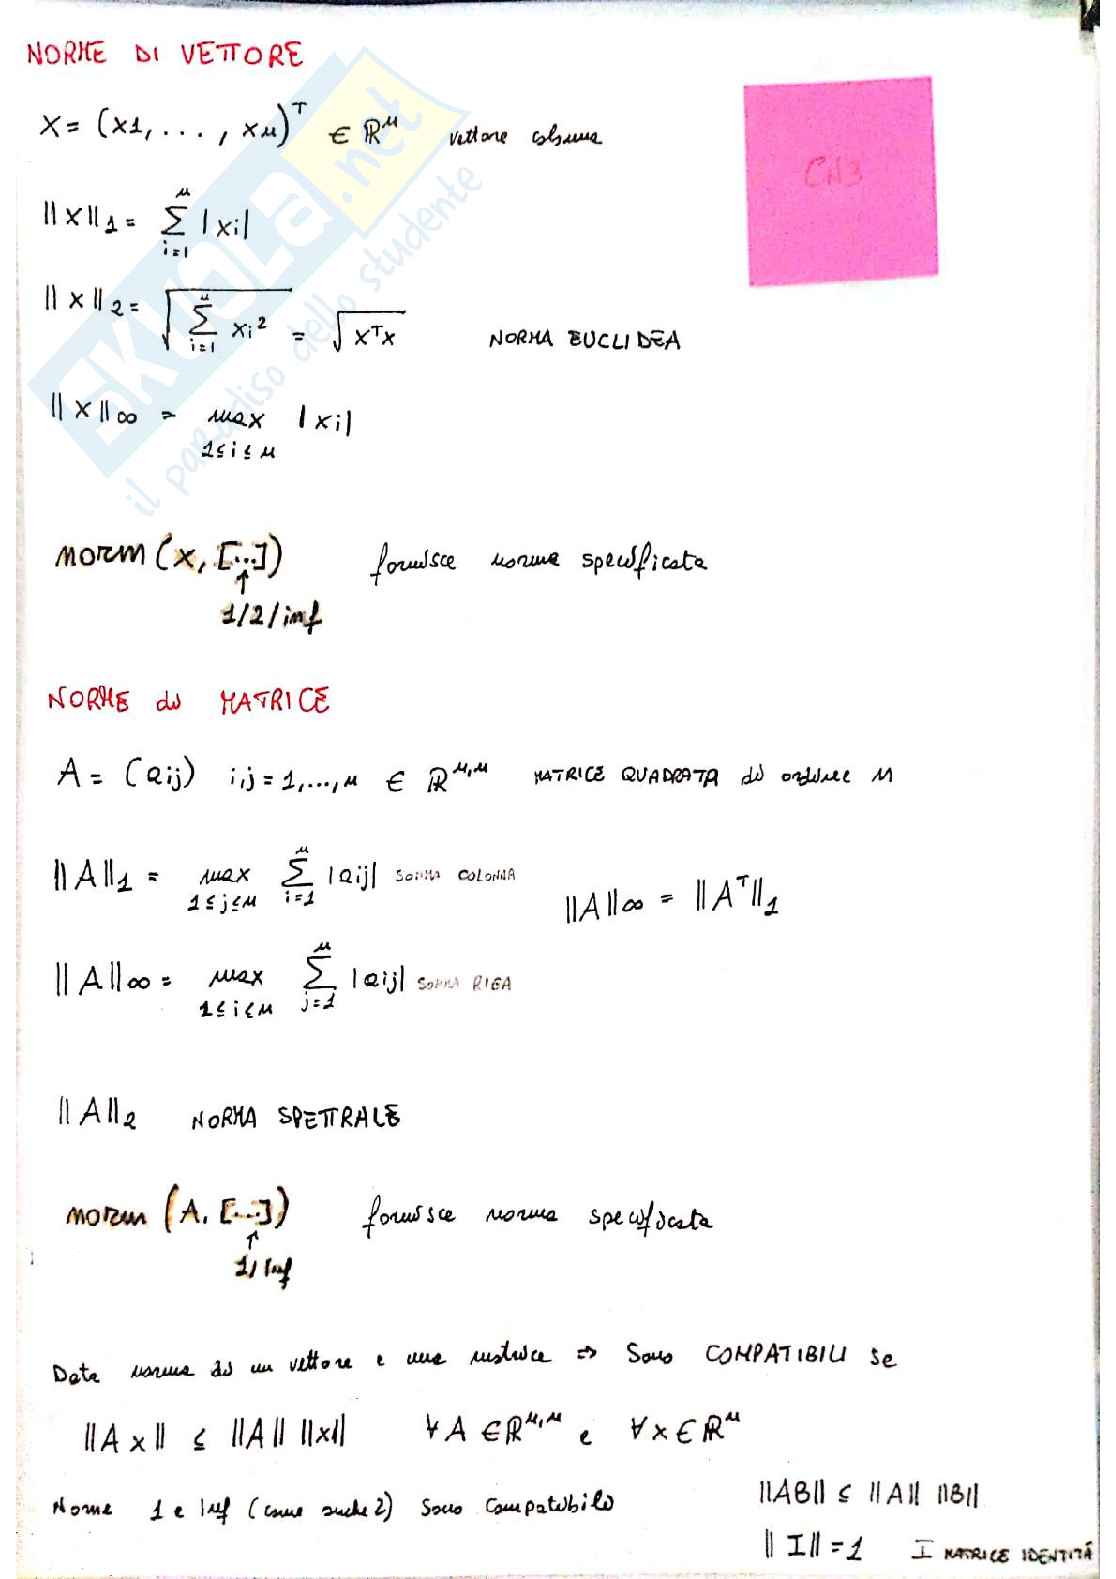 NORME DI VETTORE
X = (x1, ..., xn)^T ∈ ℝ^n vettore colonna
CN3
||x||_1 = Σ_{i=1}^{n} |xi|
||x||_2 = √(Σ_{i=1}^{n} xi^2) = √(x^T x) NORMA EUCLIDEA
||x||_∞ = max_{1≤i≤n} |xi|
norm (x, [...]) fornisce norma specificata
↑
1/2/inf
NORME di MATRICE
A = (aij) i,j = 1,...,n ∈ ℝ^{n,n} MATRICE QUADRATA di ordine n
||A||_1 = max_{1≤j≤n} Σ_{i=1}^{n} |aij| SOMMA COLONNA
||A||_∞ = ||A^T||_1
||A||_∞ = max_{1≤i≤n} Σ_{j=1}^{n} |aij| SOMMA RIGA
||A||_2 NORMA SPETTRALE
norm (A, [...]) fornisce norma specificata
↑
1/inf
Data norma di un vettore e una matrice ⇒ Sono COMPATIBILI se
||Ax|| ≤ ||A|| ||x|| ∀A ∈ ℝ^{n,n} e ∀x ∈ ℝ^n
Norme 1 e Inf (come anche 2) sono compatibili
||AB|| ≤ ||A|| ||B||
||I|| = 1 I MATRICE IDENTITÁ
SKUOLA.net
il paradiso dello studente